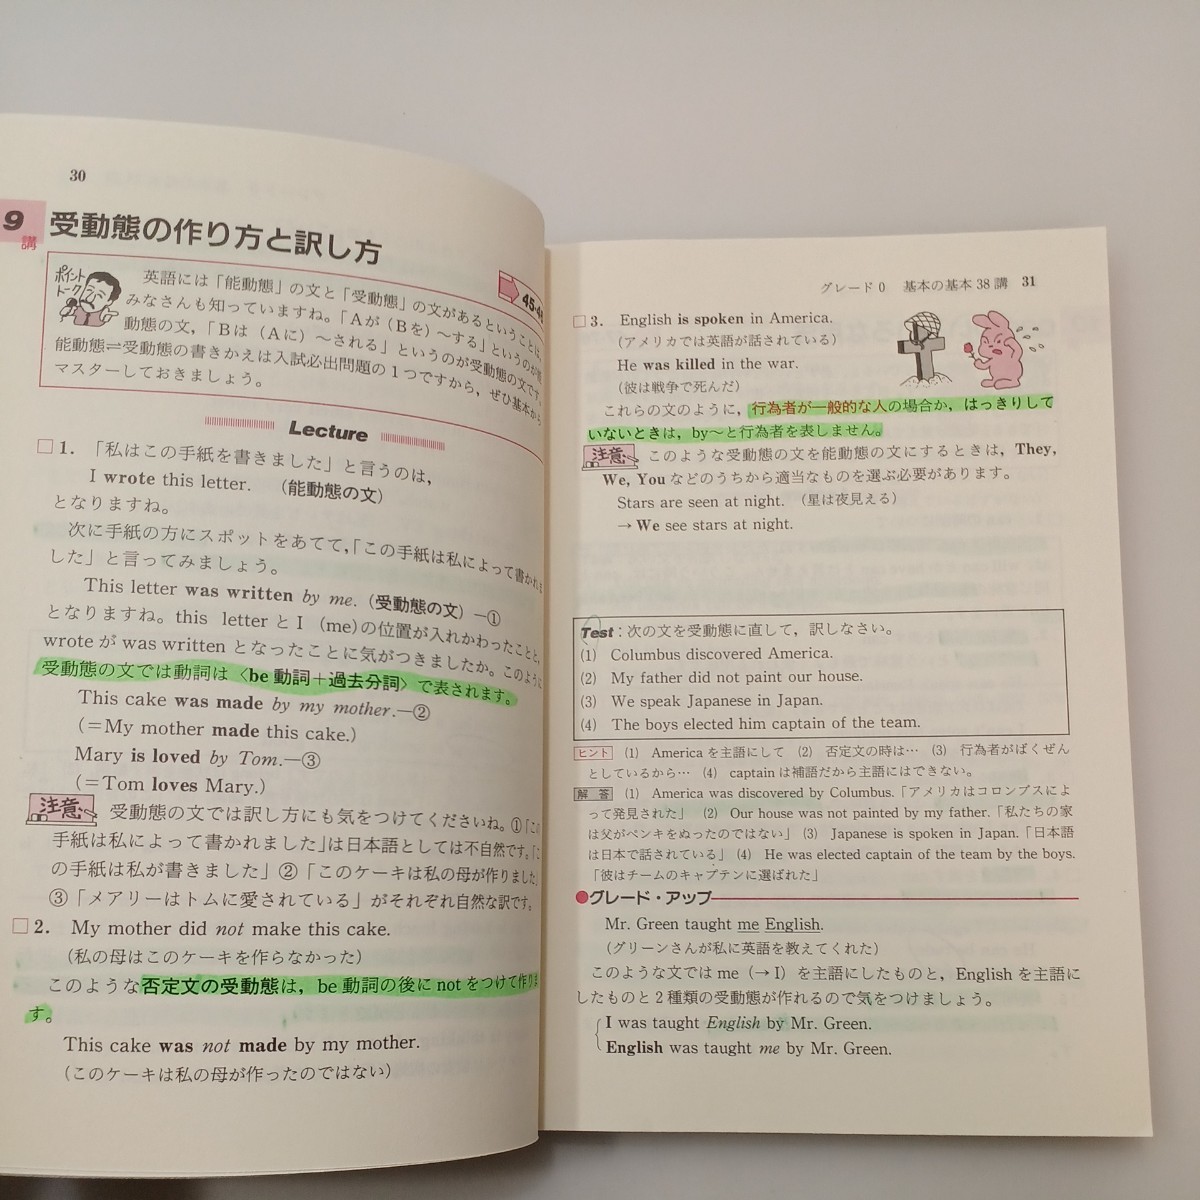 30
9
講
受動態の作り方と訳し方
ポイント
トーク
英語には「能動態」の文と「受動態」の文があるということは,
みなさんも知っていますね。「Aが(Bを)〜する」というのが能
動態の文,「Bは(Aに)〜される」というのが受動態の文です。
能動態⇌受動態の書きかえは入試必出問題の1つですから,ぜひ基本から
マスターしておきましょう。
Lecture
□ 1. 「私はこの手紙を書きました」と言うのは,
I wrote this letter. (能動態の文)
となりますね。
次に手紙の方にスポットをあてて,「この手紙は私によって書かれま
した」と言ってみましょう。
This letter was written by me. (受動態の文) —①
となりますね。this letterとI (me)の位置が入れかわったことと,
wroteがwas writtenとなったことに気がつきましたか。このように
受動態の文では動詞は〈be動詞+過去分詞〉で表されます。
This cake was made by my mother.—②
(=My mother made this cake.)
Mary is loved by Tom.—③
(=Tom loves Mary.)
注意 受動態の文では訳し方にも気をつけてくださいね。①「この
手紙は私によって書かれました」は日本語としては不自然です。「こ
の手紙は私が書きました」②「このケーキは私の母が作りました」
③「メアリーはトムに愛されている」がそれぞれ自然な訳です。
□ 2. My mother did not make this cake.
(私の母はこのケーキを作らなかった)
このような否定文の受動態は, be動詞の後にnotをつけて作りま
す。
This cake was not made by my mother.
(このケーキは私の母が作ったのではない)
グレード0 基本の基本38講 31
□ 3. English is spoken in America.
(アメリカでは英語が話されている)
He was killed in the war.
(彼は戦争で死んだ)
これらの文のように, 行為者が一般的な人の場合か, はっきりして
いないときは, by〜と行為者を表しません。
注意 このような受動態の文を能動態の文にするときは, They,
We, Youなどのうちから適当なものを選ぶ必要があります。
Stars are seen at night. (星は夜見える)
→ We see stars at night.
Test : 次の文を受動態に直して, 訳しなさい。
(1) Columbus discovered America.
(2) My father did not paint our house.
(3) We speak Japanese in Japan.
(4) The boys elected him captain of the team.
ヒント (1) Americaを主語にして (2) 否定文の時は… (3) 行為者がばくぜん
としているから… (4) captainは補語だから主語にはできない。
解 答 (1) America was discovered by Columbus.「アメリカはコロンブスによ
って発見された」 (2) Our house was not painted by my father.「私たちの家
は父がペンキをぬったのではない」 (3) Japanese is spoken in Japan.「日本語
は日本で話されている」 (4) He was elected captain of the team by the boys.
「彼はチームのキャプテンに選ばれた」
●グレード・アップ
Mr. Green taught me English.
(グリーンさんが私に英語を教えてくれた)
このような文ではme (→I) を主語にしたものと, Englishを主語に
したものと2種類の受動態が作れるので気をつけましょう。
I was taught English by Mr. Green.
English was taught me by Mr. Green.